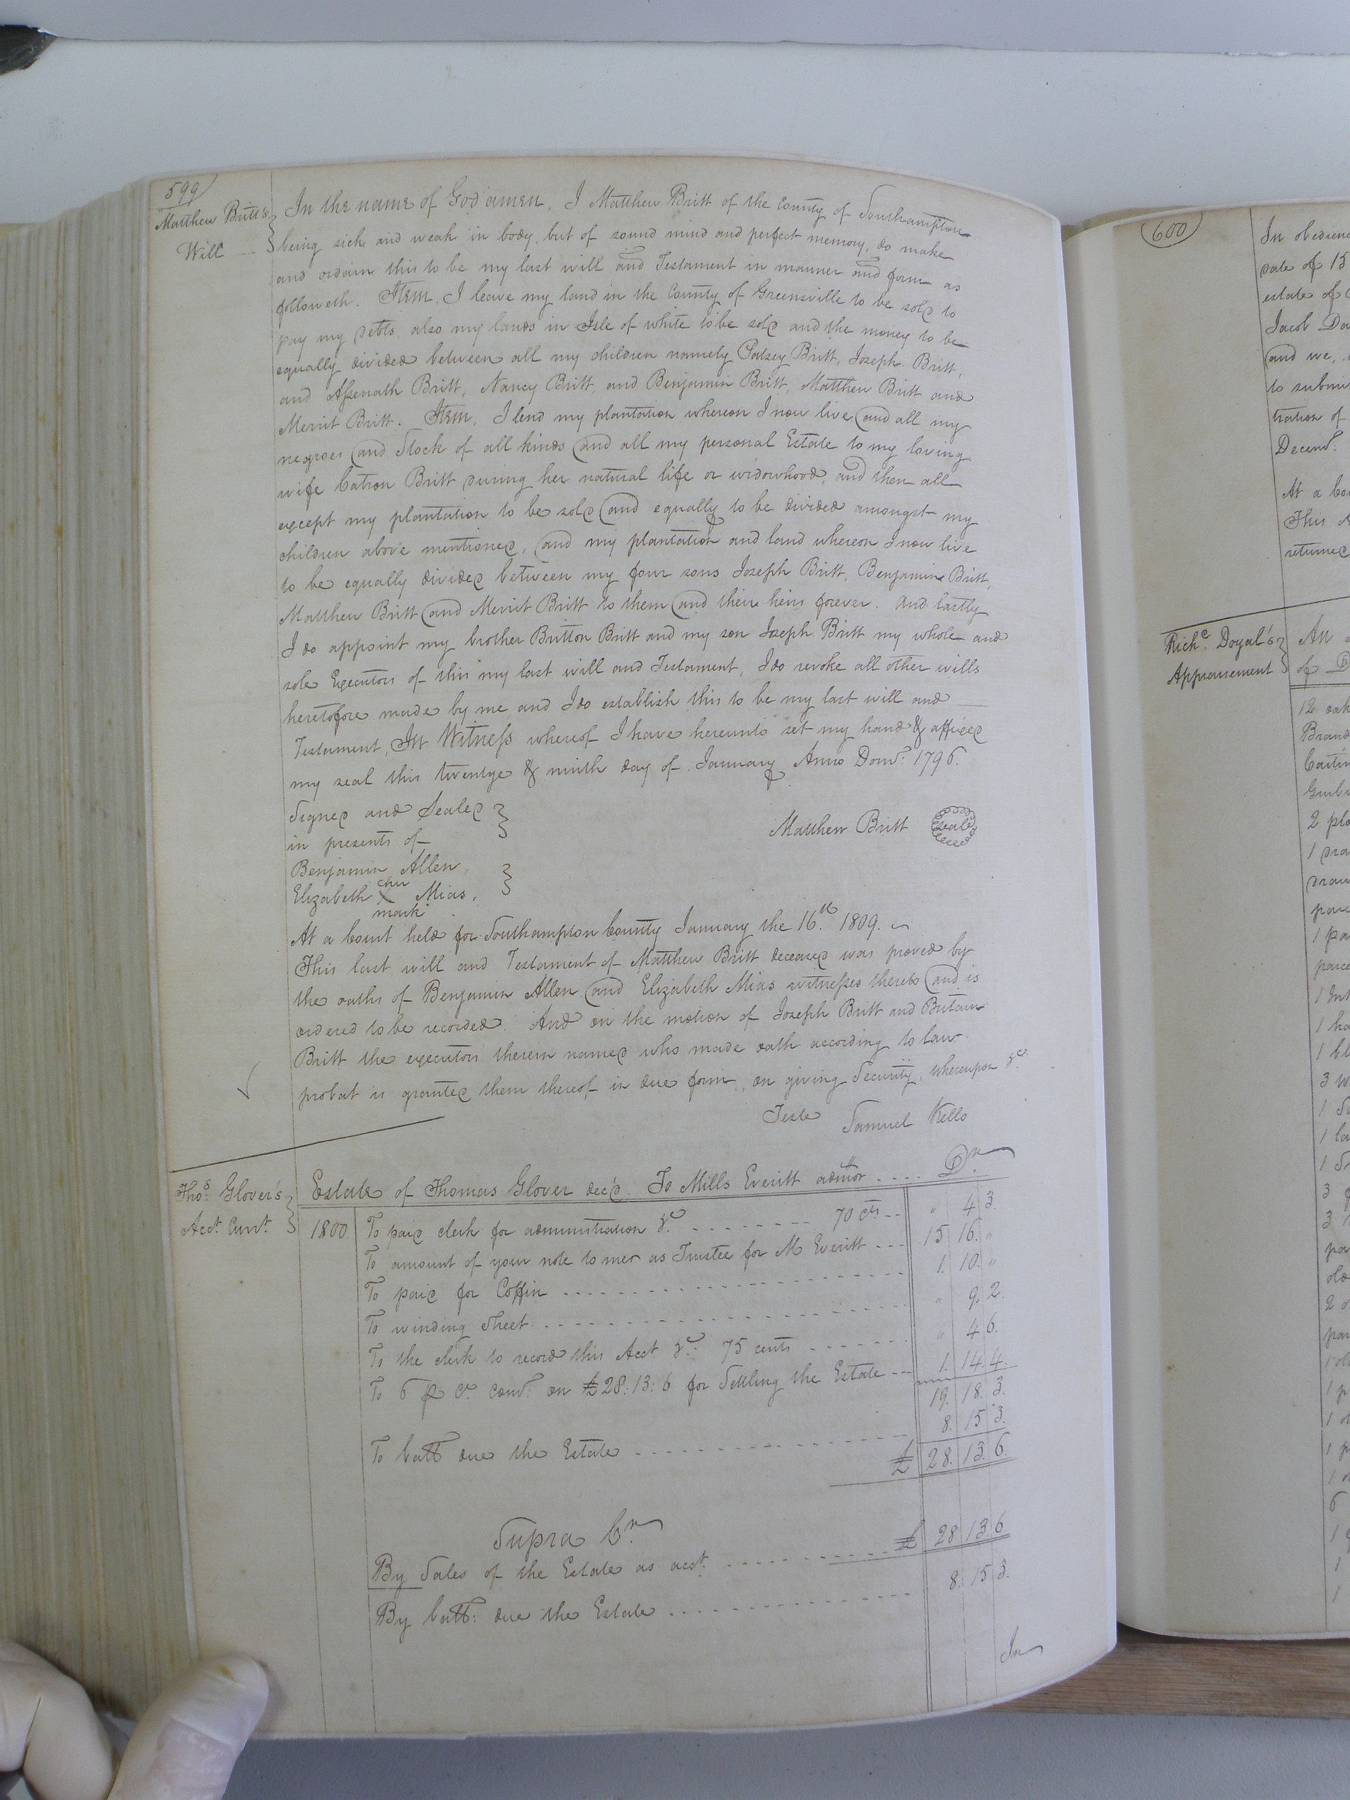 599
Matthew Britt's
Will
In the name of God amen, I Matthew Britt of the County of Southampton
being sick and weak in body, but of sound mind and perfect memory, do make
and ordain this to be my last will and Testament in manner and form as
followeth. Item, I leave my land in the County of Greensville to be sold to
pay my debts also my lands in Isle of white to be sold and the money to be
equally divided between all my children namely Patsey Britt, Joseph Britt,
and Assenath Britt, Nancy Britt and Benjamin Britt, Matthew Britt and
Merrit Britt. Item, I lend my plantation whereon I now live and all my
negroes and Stock of all kinds and all my personal Estate to my loving
wife Catron Britt during her natural life or widowhood, and then all
except my plantation to be sold and equally to be divided amongst my
children above mentioned, and my plantation and land whereon I now live
to be equally divided between my four sons Joseph Britt, Benjamin Britt,
Matthew Britt and Merrit Britt to them and their heirs forever. And lastly
I do appoint my brother Britton Britt and my son Joseph Britt my whole and
sole Executors of this my last will and Testament, I do revoke all other wills
heretofore made by me and I do establish this to be my last will and
Testament, In Witness whereof I have hereunto set my hand & affixed
my seal this twentye & ninth day of January Anno Domi. 1796.
Signed and Sealed
in presents of
Matthew Britt seal
Benjamin Allen,
Elizabeth her X mark Mias,
At a Court held for Southampton County January the 16.th 1809.
This last will and Testament of Matthew Britt deceased was proved by
the oaths of Benjamin Allen and Elizabeth Mias witnesses thereto and is
ordered to be recorded. And on the motion of Joseph Britt and Britain
Britt the executors therein named who made oath according to law
probat is granted them thereof in due form, on giving Security, whereupon &c.
Teste Samuel Kello
Thos. Glover's
Acct. Curnt.
Estate of Thomas Glover decd. To Mills Everitt admtor .... Dr.
1800 To paid clerk for administration &c. 70 cts " 4 3.
To amount of your note to mer as Trustee for M Everitt 15 16. "
To paid for Coffin 1. 10. "
To winding Sheet " 9. 2.
To the clerk to record this Acct &c. 75 cents " 4 6.
To 6 p Ct. Comn. on £28:13:6 for Settling the Estate 1. 14. 4.
19. 18. 3.
To ball due the Estate 8. 15 3.
£ 28. 13. 6.
Supra Cr.
By Sales of the Estate as acct. £ 28 13 6
By ball: due the Estate 8. 15 3.
In
600
In obedienc
date of 15
estate of
Jacob
and we,
to submi
tration of
Decemr.
At a Cou
This
returned
Richd. Doyal's
Appraisement
An
of
12
Brand
2
1
1
1
1
1
3
1
1
1
3
3
2
1
1
1
1
6
1
1
1